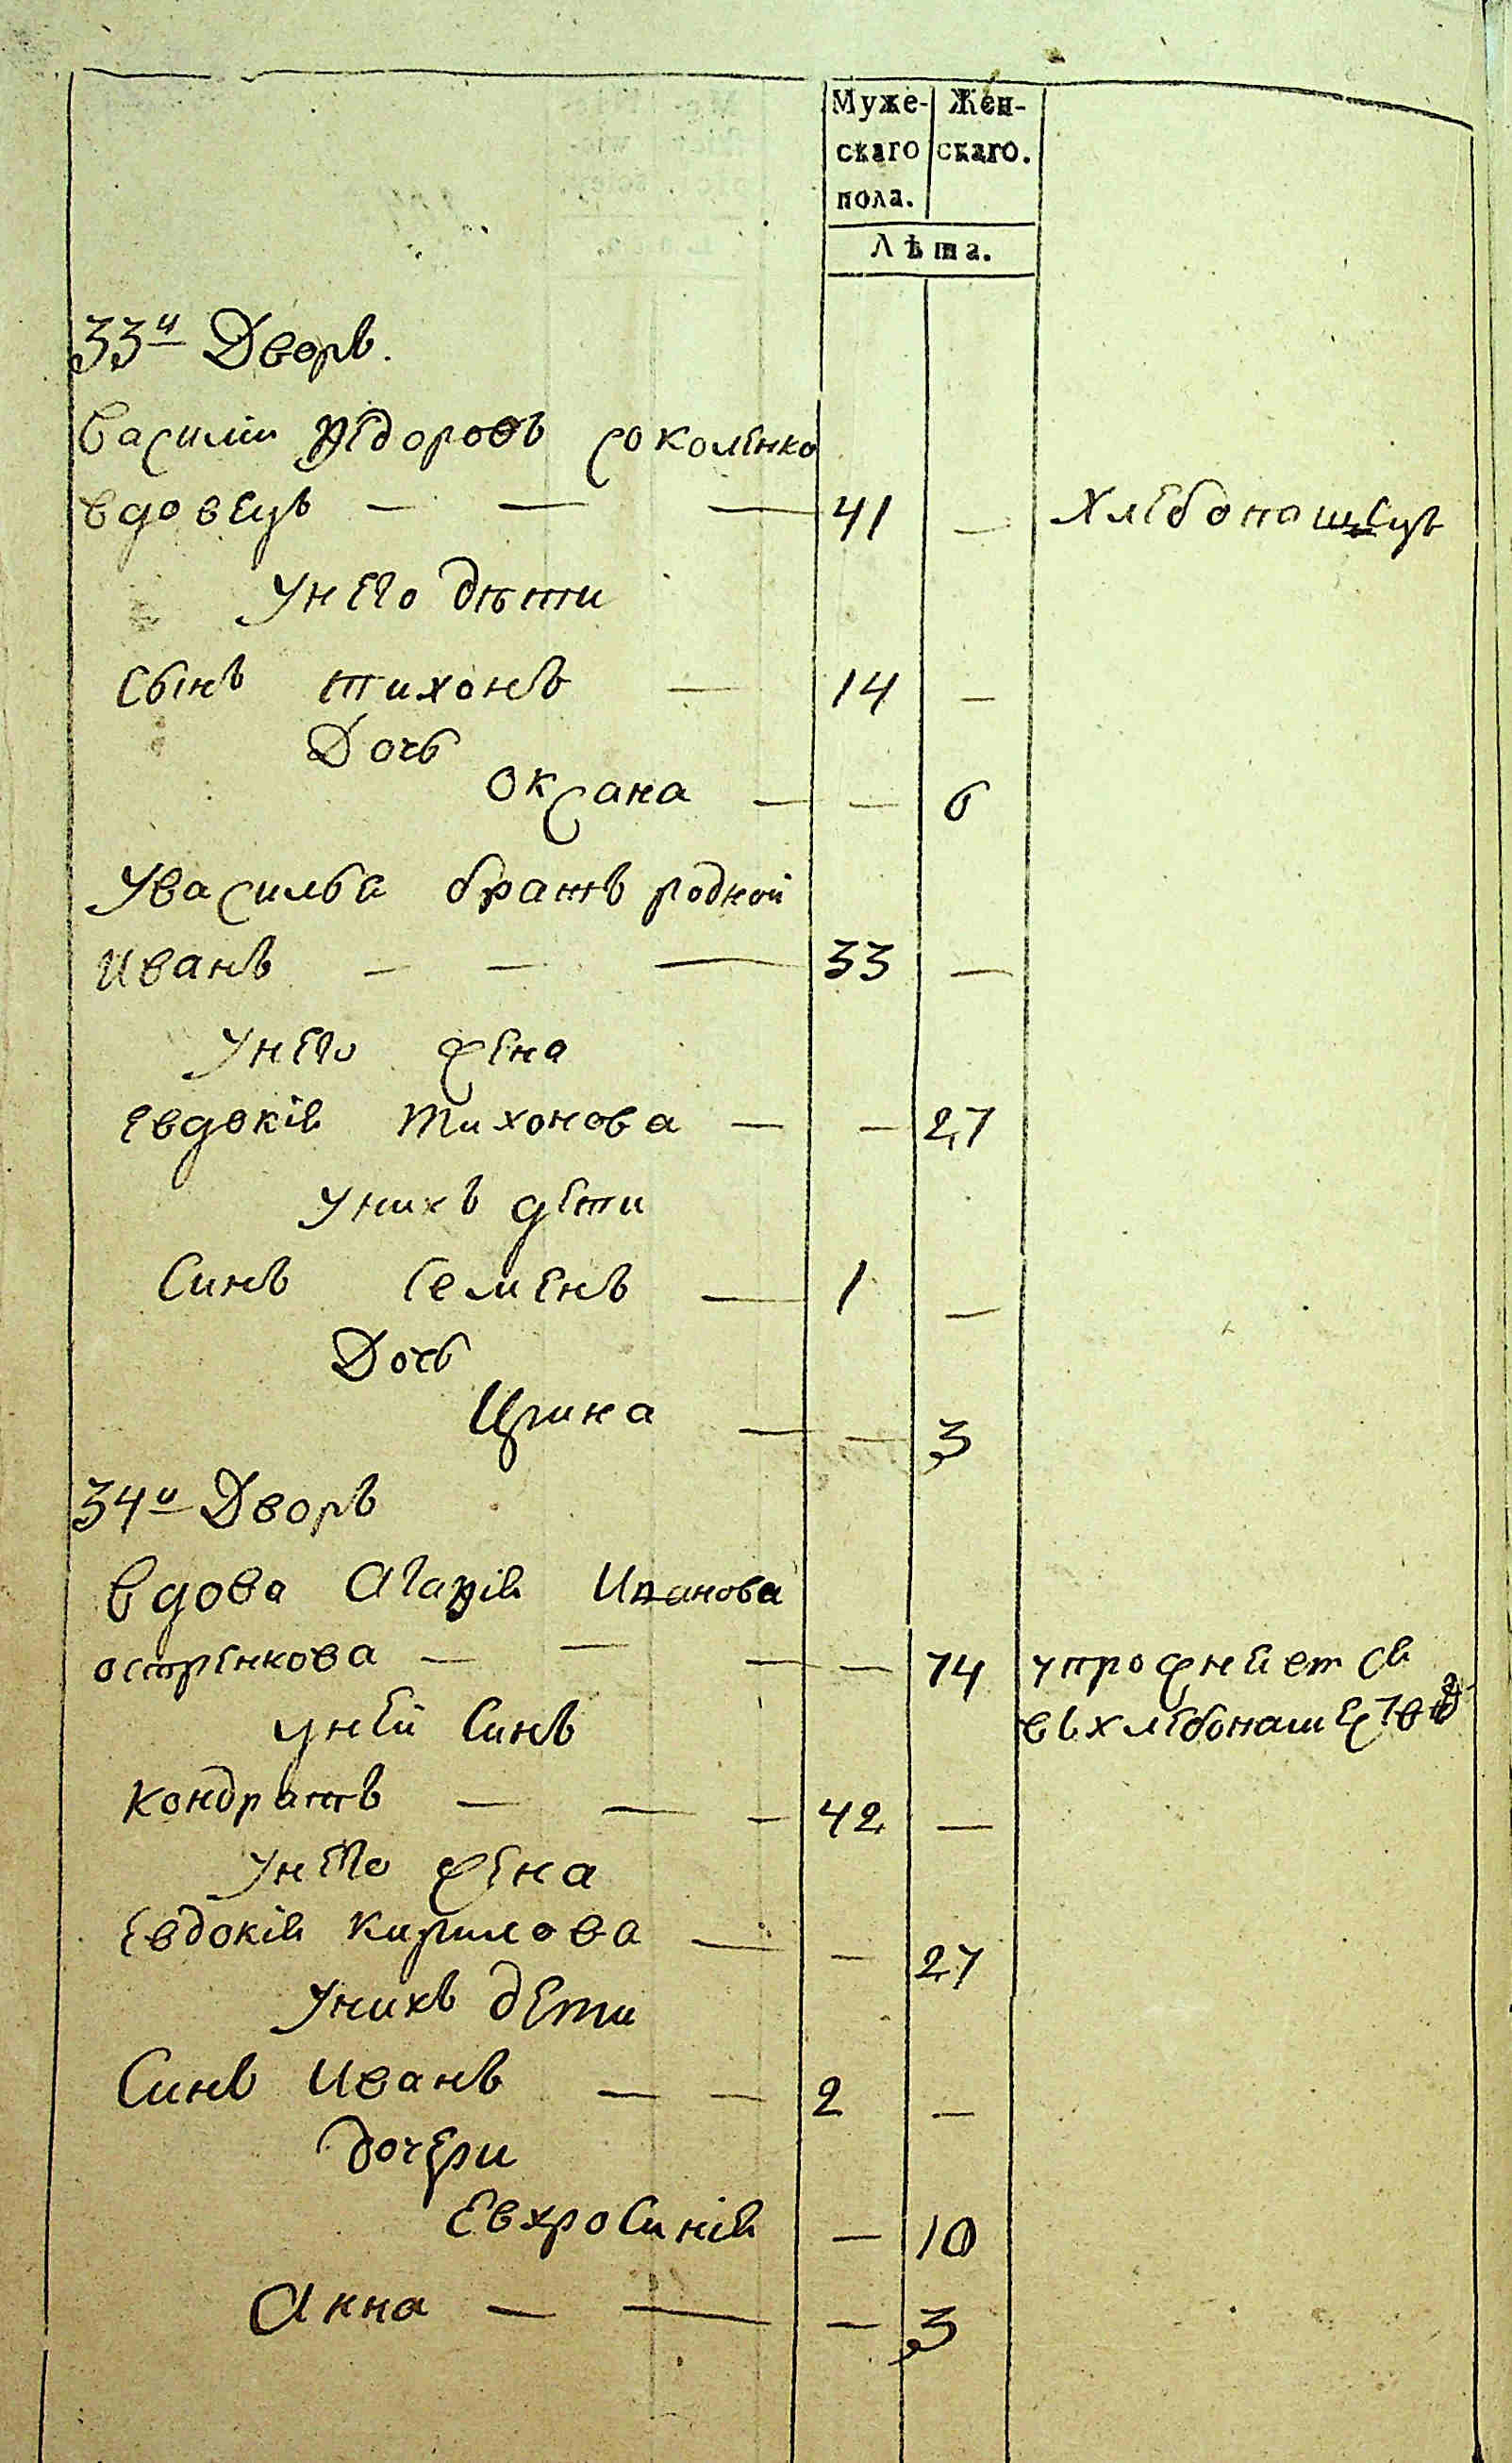 Муже- Жен-
скаго скаго.
пола.
Лѣта.
33й Дворъ.
Василій Федоровъ Соколенко
вдовецъ — — — 41 — хлебопашецъ
Унего дѣти
Сынъ тихонъ — 14 —
Дочь
Оксана — — 6
Увасилья братъ родной
Иванъ — — — 33 —
Унего жена
Евдокія Тихонова — — 27
Унихъ дети
Синъ Семенъ — 1 —
Дочь
Ирина — — 3
34й Дворъ
Вдова Агафія Иванова
остренкова — — — — 74 упрожняется
уней Синъ въхлебопашестве
Кондратъ — — — 42 —
Унего жена
Евдокія Кирилова — — 27
Унихъ дети
Синъ Иванъ — — 2 —
дочери
Евхросинія — 10
Анна — — — 3